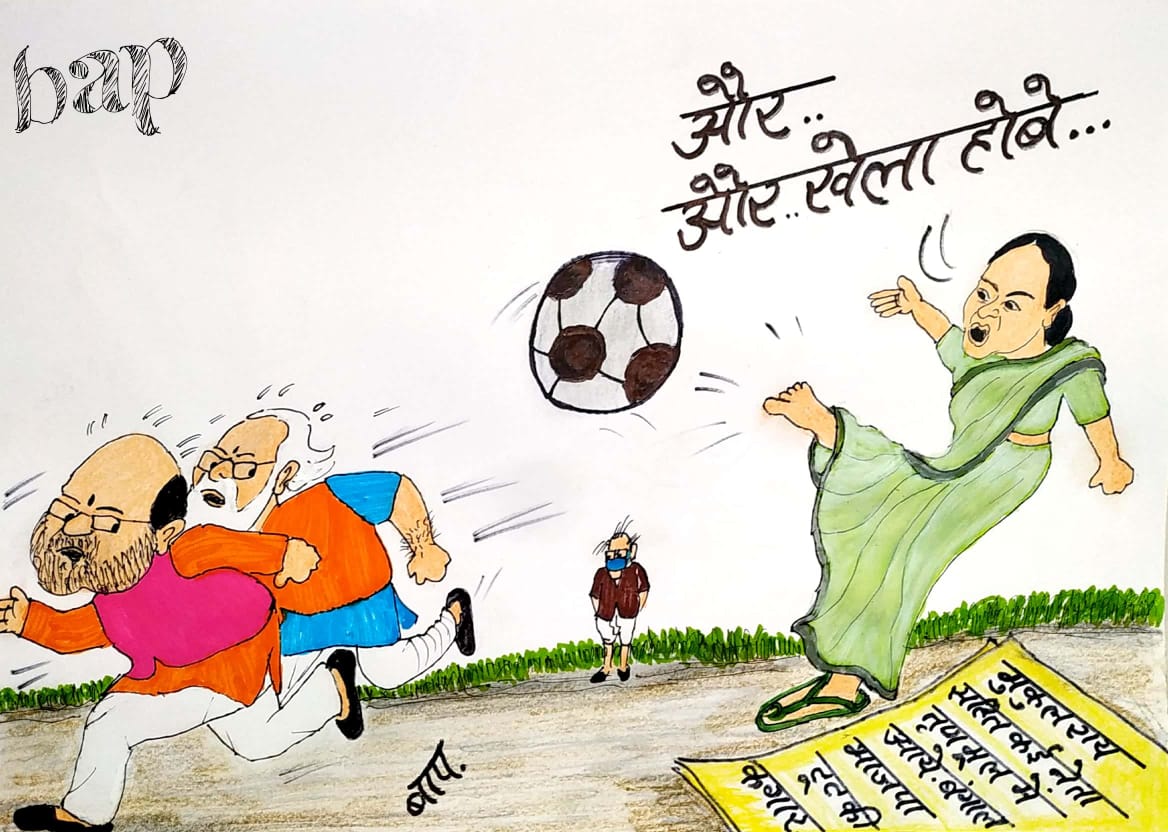 bap
और..
और..खेला होबे...
बाप.
मुकुल राय
सहित कई नेता
तृणमूल में
आये. बंगाल
भाजपा
की
कगार